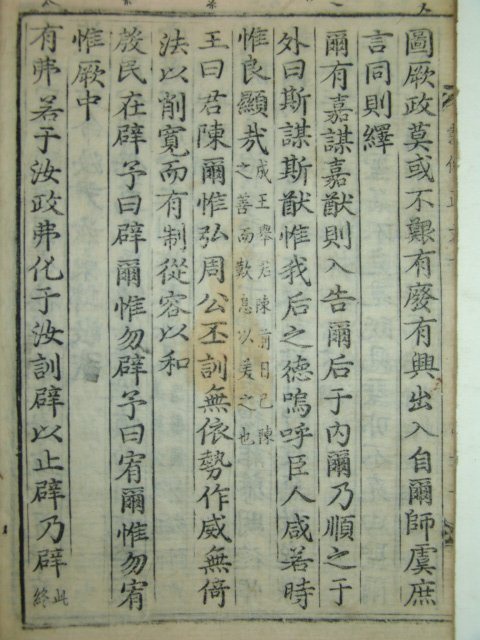 圖厥政莫或不艱有廢有興出入自爾師虞庶
言同則繹
爾有嘉謀嘉猷則入告爾后于內爾乃順之于
外曰斯謀斯猷惟我后之德嗚呼臣人咸若時
惟良顯哉成王舉君陳前日已陳之善而歎息以美之也
王曰君陳爾惟弘周公丕訓無依勢作威無倚
法以削寬而有制從容以和
殷民在辟予曰辟爾惟勿辟予曰宥爾惟勿宥
惟厥中
有弗若于汝政弗化于汝訓辟以止辟乃辟此終